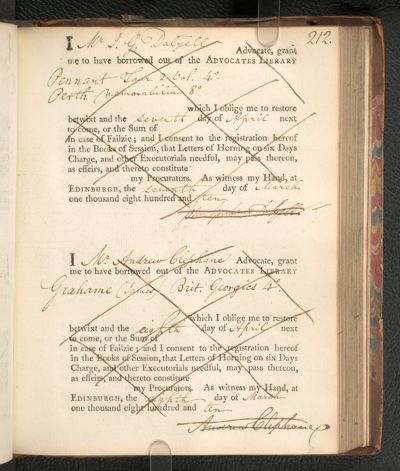 212.
I Mr J. G. Dalyell Advocate, grant
me to have borrowed out of the ADVOCATES LIBRARY
Pennant 2 Vol. 4º
Perth Memorabilia 8º
which I oblige me to restore
betwixt and the seventh day of April next
to come, or the Sum of
in case of Failzie; and I consent to the registration hereof
in the Books of Session, that Letters of Horning on six Days
Charge, and other Executorials needful, may pass thereon,
as effeirs, and thereto constitute
my Procurators. As witness my Hand, at
EDINBURGH, the seventh day of March
one thousand eight hundred and ten
I Mr Andrew Clephane Advocate, grant
me to have borrowed out of the ADVOCATES LIBRARY
Grahame (James) Brit. Georgics 4º
which I oblige me to restore
betwixt and the eighth day of April next
to come, or the Sum of
in case of Failzie; and I consent to the registration hereof
in the Books of Session, that Letters of Horning on six Days
Charge, and other Executorials needful, may pass thereon,
as effeirs, and thereto constitute
my Procurators. As witness my Hand, at
EDINBURGH, the eighth day of March
one thousand eight hundred and ten
Andrew Clephane